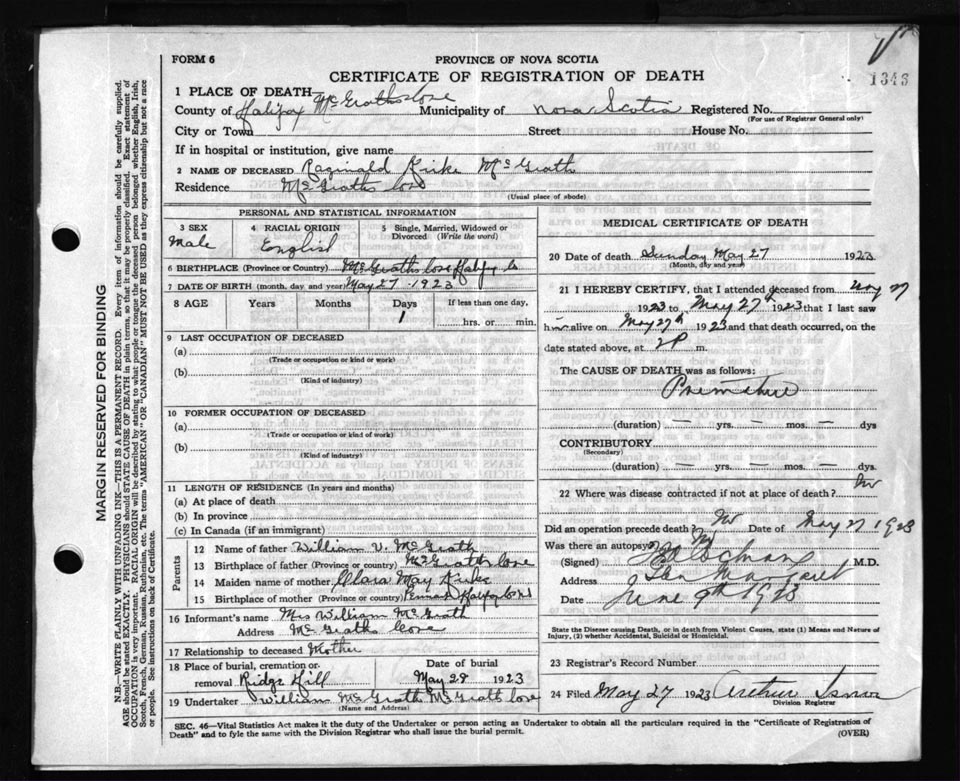 FORM 6
PROVINCE OF NOVA SCOTIA
CERTIFICATE OF REGISTRATION OF DEATH
1343
1 PLACE OF DEATH
County of Halifax McGraths cove Municipality of Nova Scotia Registered No.
(For use of Registrar General only)
City or Town Street House No.
If in hospital or institution, give name
2 NAME OF DECEASED Raginald Kirke McGrath
Residence McGraths cove
(Usual place of abode)
PERSONAL AND STATISTICAL INFORMATION
3 SEX 4 RACIAL ORIGIN 5 Single, Married, Widowed or Divorced (Write the word)
Male English
6 BIRTHPLACE (Province or Country) McGraths cove Halifax Co
7 DATE OF BIRTH (month, day and year) May 27 1923
8 AGE Years Months Days If less than one day,
1 hrs. or min.
9 LAST OCCUPATION OF DECEASED
(a)
(Trade or occupation or kind of work)
(b)
(Kind of industry)
10 FORMER OCCUPATION OF DECEASED
(a)
(Trade or occupation or kind of work)
(b)
(Kind of industry)
11 LENGTH OF RESIDENCE (In years and months)
(a) At place of death
(b) In province
(c) In Canada (if an immigrant)
Parents
12 Name of father William V. McGrath
13 Birthplace of father (Province or country) McGraths cove
14 Maiden name of mother Clara May Kirke
15 Birthplace of mother (Province or country)
16 Informant's name Mrs William McGrath
Address McGraths Cove
17 Relationship to deceased Mother
18 Place of burial, cremation or removal Ridge Hill
Date of burial May 28 1923
19 Undertaker William McGrath McGrath cove
(Name and Address)
MEDICAL CERTIFICATE OF DEATH
20 Date of death Sunday May 27 1923
(Month, day and year)
21 I HEREBY CERTIFY, that I attended deceased from May 27
1923 to May 27th 1923 that I last saw
him alive on May 27th 1923 and that death occurred, on the
date stated above, at 2P m.
The CAUSE OF DEATH was as follows:
Premature
(duration) — yrs. — mos. — dys
CONTRIBUTORY
(Secondary)
(duration) — yrs. — mos. — dys.
22 Where was disease contracted if not at place of death?
Did an operation precede death? No Date of May 27 1923
Was there an autopsy? No
(Signed) M.D.
Address
Date June 9th 1923
State the Disease causing Death, or in death from Violent Causes, state (1) Means and Nature of
Injury, (2) whether Accidental, Suicidal or Homicidal.
23 Registrar's Record Number
24 Filed May 27 1923 Arthur
Division Registrar
SEC. 46—Vital Statistics Act makes it the duty of the Undertaker or person acting as Undertaker to obtain all the particulars required in the "Certificate of Registration of
Death" and to fyle the same with the Division Registrar who shall issue the burial permit. (OVER)
MARGIN RESERVED FOR BINDING
N.B.—WRITE PLAINLY WITH UNFADING INK—THIS IS A PERMANENT RECORD. Every item of information should be carefully supplied.
AGE should be stated EXACTLY. PHYSICIANS should STATE CAUSE OF DEATH in plain terms, so that it may be properly classified. Exact statement of
OCCUPATION is very important. RACIAL ORIGIN will be described by stating to what people or tongue the deceased person belonged whether English, Irish,
Scotch, French, German, Russian, Ruthenian, etc. The terms "AMERICAN" or "CANADIAN" MUST NOT BE USED as they express citizenship but not a race
or people. See instructions on back of Certificate.